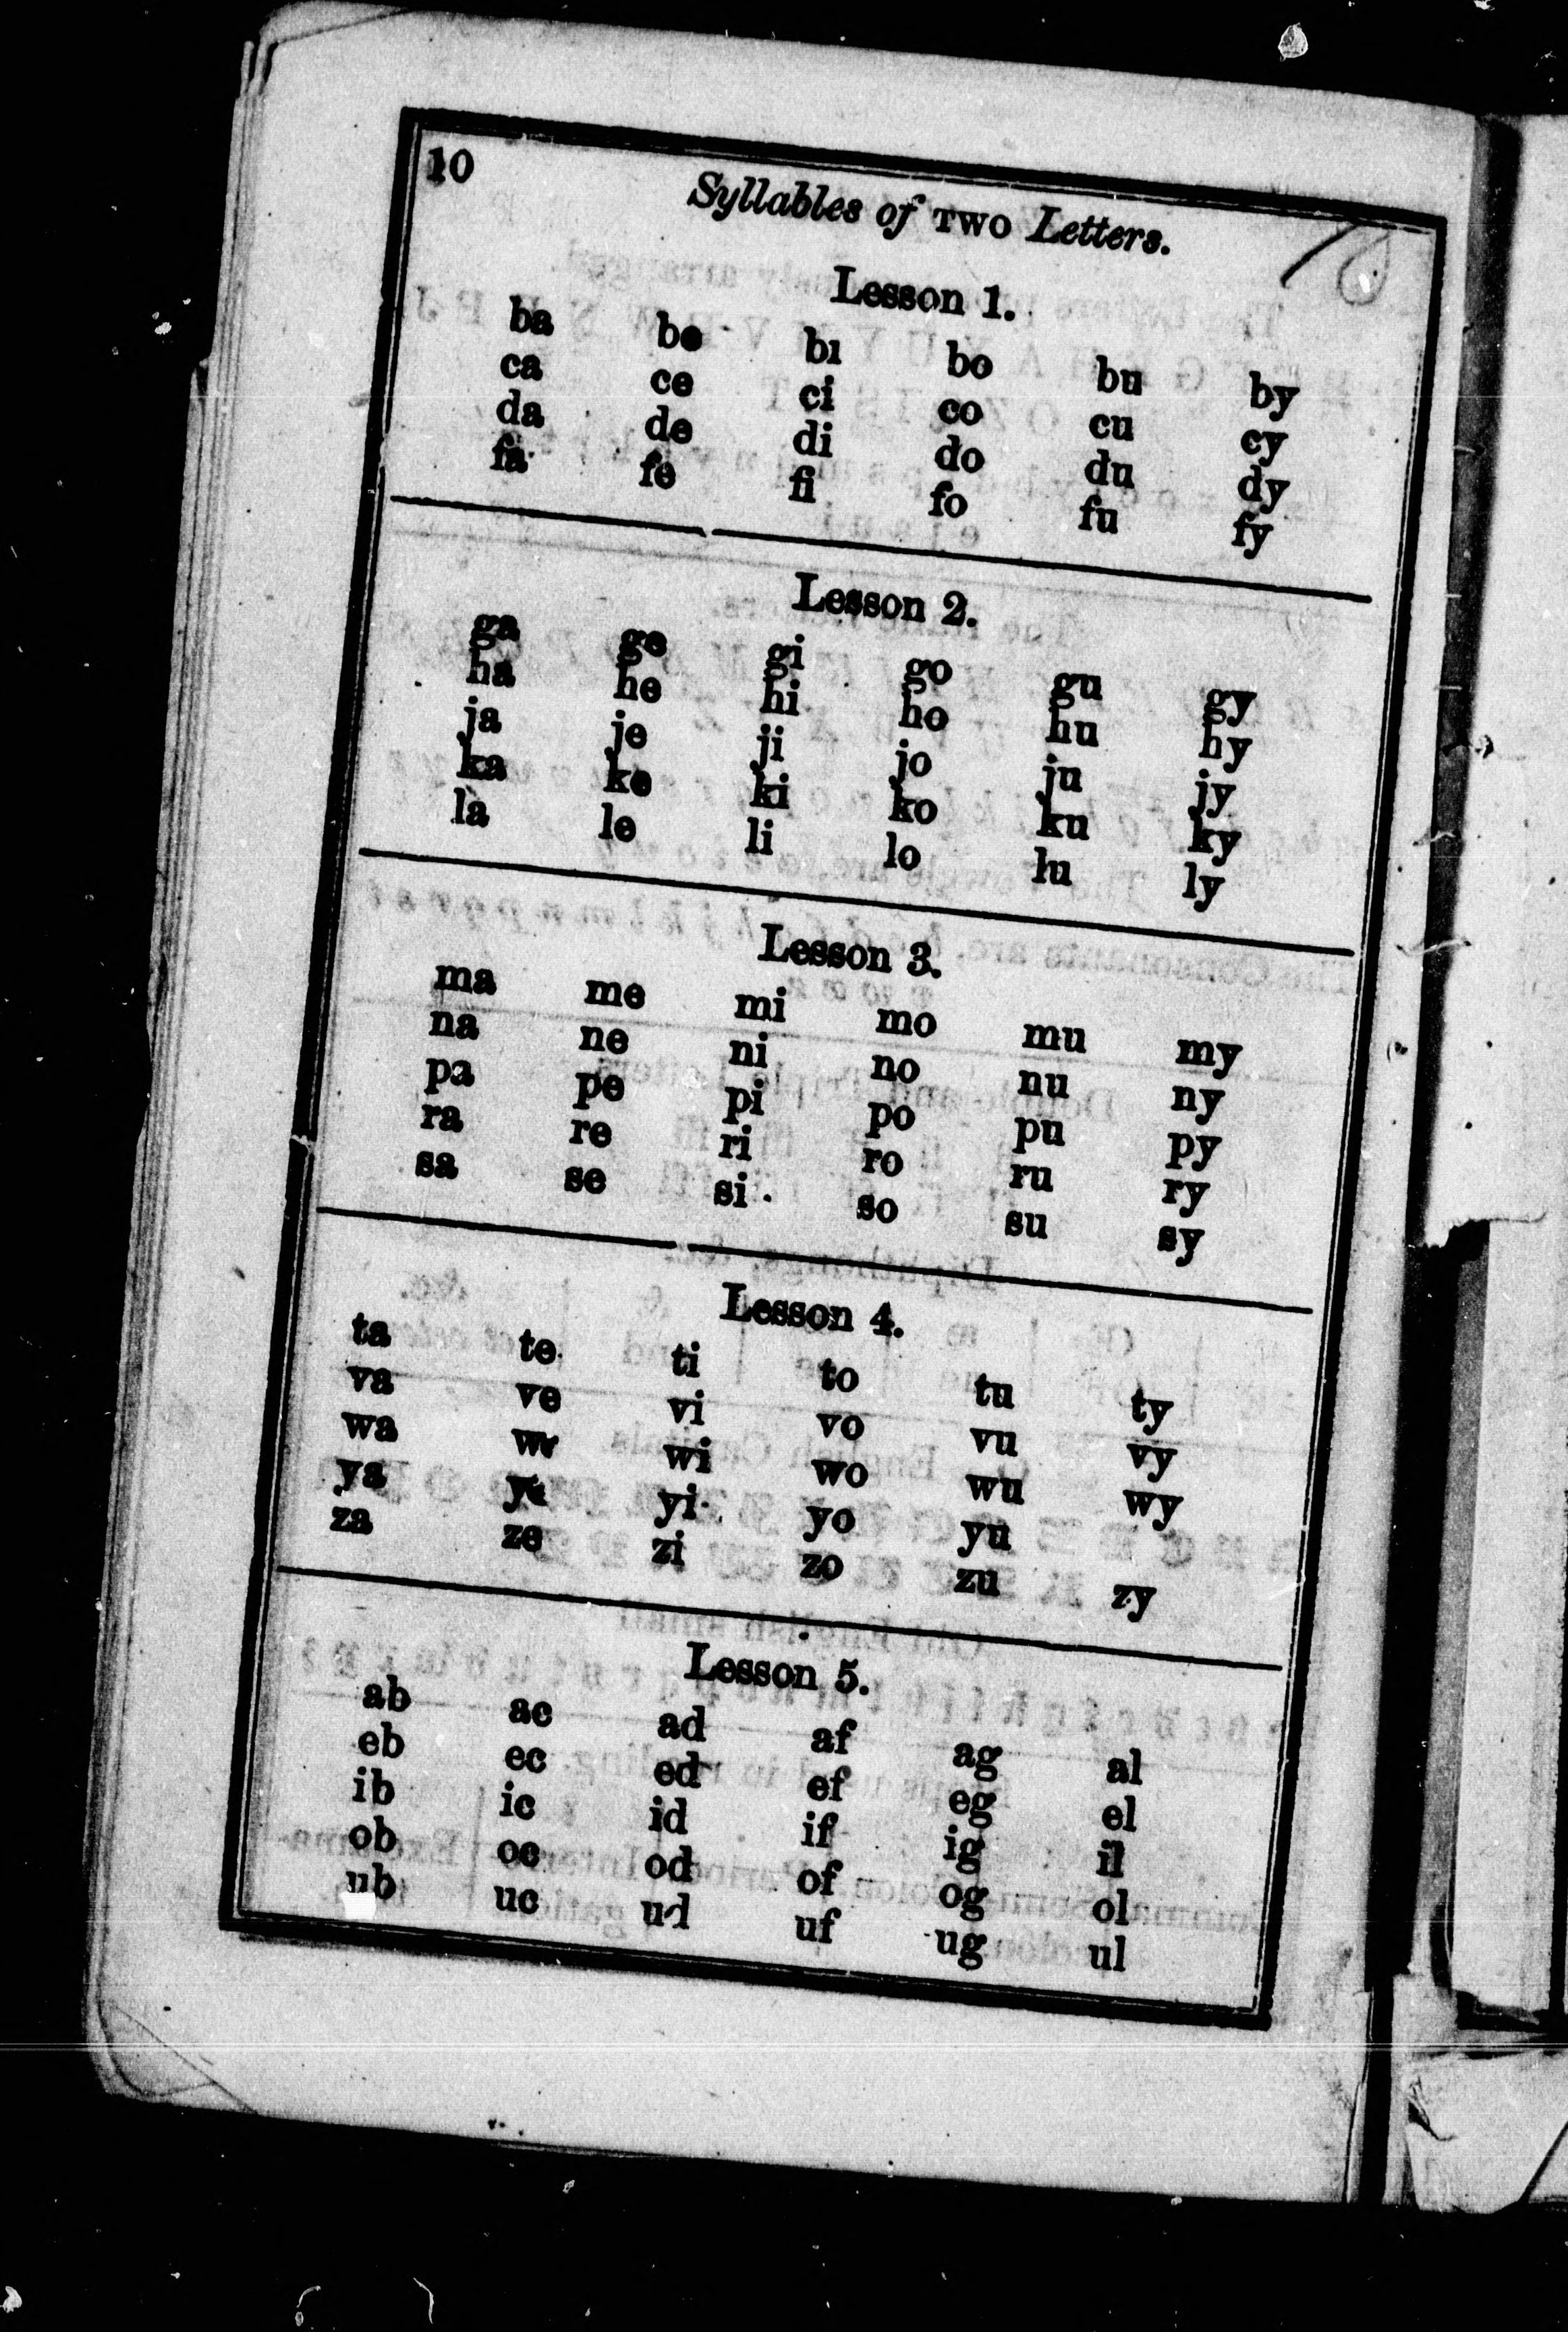 10
Syllables of TWO Letters.
Lesson 1.
ba be bi bo bu by
ca ce ci co cu cy
da de di do du dy
fa fe fi fo fu fy
Lesson 2.
ga ge gi go gu gy
ha he hi ho hu hy
ja je ji jo ju jy
ka ke ki ko ku ky
la le li lo lu ly
Lesson 3.
ma me mi mo mu my
na ne ni no nu ny
pa pe pi po pu py
ra re ri ro ru ry
sa se si so su sy
Lesson 4.
ta te ti to tu ty
va ve vi vo vu vy
wa we wi wo wu wy
ya ye yi yo yu
za ze zi zo zu zy
Lesson 5.
ab ac ad af ag al
eb ec ed ef eg el
ib ic id if ig il
ob oc od of og ol
ub uc ud uf ug ul